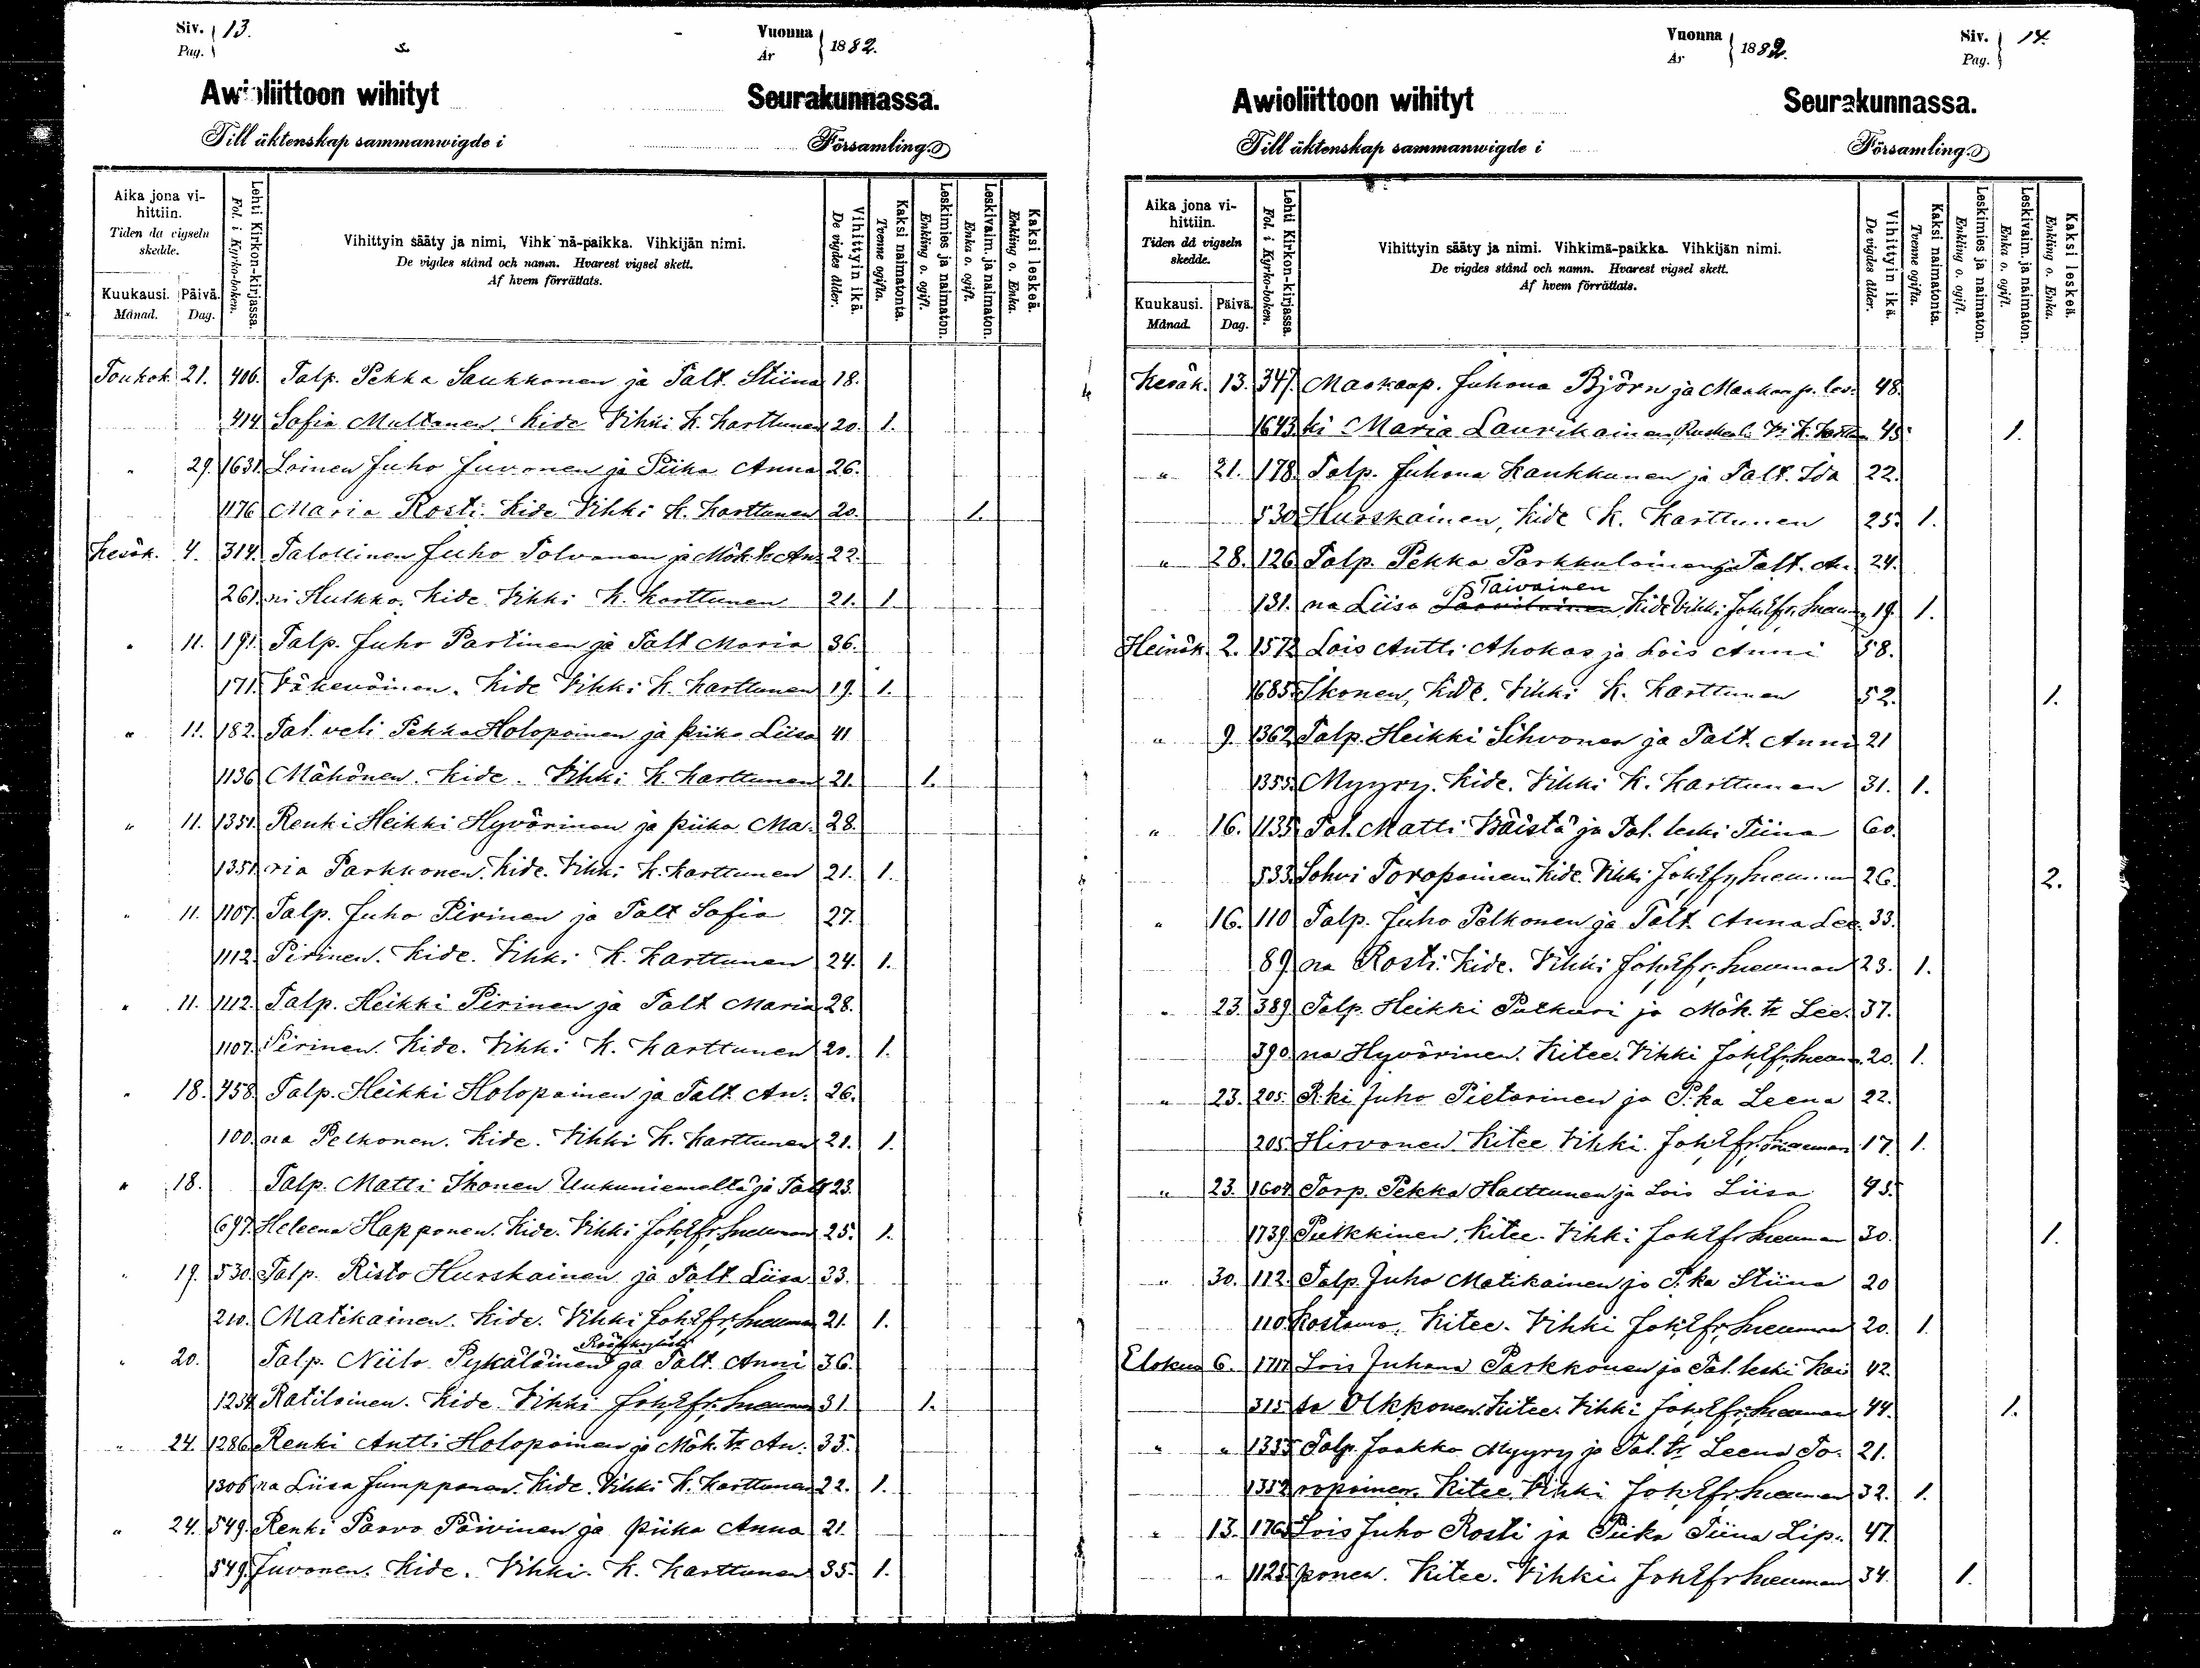 Siv. Pag. 13.
Vuonna År 1882.
Awioliittoon wihityt Seurakunnassa.
Till äktenskap sammanwigde i Församling.
Aika jona vihittiin. Tiden da vigseln skedde.
Kuukausi. Månad.
Päivä. Dag.
Lehti Kirkon-kirjassa. Fol. i Kyrko-boken.
Vihittyin sääty ja nimi, Vihk nä-paikka. Vihkijän nimi.
De vigdes stånd och namn. Hvarest vigsel skett.
Af hvem förrättats.
Vihittyin ikä. De vigdes ålder.
Kaksi naimatonta. Tvenne ogifta.
Leskimies ja naimaton. Enkling o. ogift.
Leskivaim. ja naimaton. Enka o. ogift.
Kaksi leskeä. Enkling o. Enka.
Toukok 21. 406. Talp. Pekka Saukkonen ja Talt. Stiina 18.
414 Sofia Multanen. Kide Vihki K. Karttunen 20. 1.
" 29. 1631. Loinen Juho Juvonen ja Piika Anna 26.
1176 Maria Rosti. Kide Vihki K. Karttunen 20. 1.
Kesäk. 4. 314. Talollinen Juho Tolvanen ja Mök. tr An- 22.
261. ni Hulkko. Kide. Vihki K. Karttunen 21. 1.
" 11. 191. Talp. Juho Partinen ja Talt Maria 36.
171. Väkeväinen. Kide Vihki K. Karttunen 19. 1.
" 11. 182. Tal. veli Pekka Holopainen ja piika Liisa 41
1136 Mähönen. Kide. Vihki K. Karttunen 21. 1.
" 11. 1351. Renki Heikki Hyvärinen ja piika Ma- 28.
1351. ria Parkkonen. Kide. Vihki K. Karttunen 21. 1.
" 11. 1107. Talp. Juho Pirinen ja Talt Sofia 27.
1112. Pirinen. Kide. Vihki K. Karttunen 24. 1.
" 11. 1112. Talp. Heikki Pirinen ja Talt Maria 28.
1107. Pirinen. Kide. Vihki K. Karttunen 20. 1.
" 18. 458. Talp. Heikki Holopainen ja Talt. An- 26.
100. na Pelkonen. Kide. Vihki K. Karttunen 21. 1.
" 18. Talp. Matti Ikonen Uukuniemeltä ja Talt 23.
697. Heleena Happonen. Kide. Vihki Joh. Efr. Sneuman 25. 1.
" 19. 530. Talp. Risto Hurskainen ja Talt. Liisa 33.
210. Matikainen. Kide. Vihki Joh. Efr. Sneuman 21. 1.
" 20. Talp. Niilo Pykäläinen ja Talt. Anni 36.
1234 Ratilainen. Kide Vihki Joh. Efr. Sneuman 31. 1.
" 24. 1286 Renki Antti Holopainen ja Mök. tr An- 35.
1306 na Liisa Jumppanen. Kide. Vihki K. Karttunen 22. 1.
" 24. 549. Renki Paavo Päivinen ja piika Anna 21.
549. Juvonen. Kide. Vihki. K. Karttunen 35. 1.
Vuonna År 1882.
Siv. Pag. 14.
Awioliittoon wihityt Seurakunnassa.
Till äktenskap sammanwigde i Församling.
Aika jona vihittiin. Tiden då vigseln skedde.
Kuukausi. Månad.
Päivä. Dag.
Lehti Kirkon-kirjassa. Fol. i Kyrko-boken.
Vihittyin sääty ja nimi. Vihkimä-paikka. Vihkijän nimi.
De vigdes stånd och namn. Hvarest vigsel skett.
Af hvem förrättats.
Vihittyin ikä. De vigdes ålder.
Kaksi naimatonta. Tvenne ogifta.
Leskimies ja naimaton. Enkling o. ogift.
Leskivaim. ja naimaton. Enka o. ogift.
Kaksi leskeä. Enkling o. Enka.
Kesäk. 13. 347. Maakaup. Juhana Björn ja Maakaup. les- 48.
1643. ki Maria Laurikainen, K. Karttunen 45. 1.
" 21. 178. Talp. Juhana Kaukkunen ja Talt. Ida 22.
530 Hurskainen, Kide K. Karttunen 25. 1.
" 28. 126 Talp. Pekka Parkkulainen ja Talt. An- 24.
Taivainen
131. na Liisa Kide Vihki Joh. Efr. Sneuman 19. 1.
Heinäk. 2. 1572 Lois Antti Ahokas ja Lois Anni 58.
1685. Ikonen, Kide. Vihki K. Karttunen 52. 1.
" 9. 1362 Talp. Heikki Sihvonen ja Talt. Anni 21
1355. Myyry. Kide. Vihki K. Karttunen 31. 1.
" 16. 1135 Tal. Matti Väistä ja Tal. leski Tiina 60.
533. Sohvi Toropainen Kide. Vihki Joh. Efr. Sneuman 26. 2.
" 16. 110 Talp. Juho Pelkonen ja Talt. Anna Lee- 33.
89. na Rosti. Kide. Vihki Joh. Efr. Sneuman 23. 1.
" 23. 389 Talp. Heikki Putkuri ja Mök. tr Lee- 37.
390. na Hyvärinen. Kitee. Vihki Joh. Efr. Sneuman 20. 1.
" 23. 205. R:ki Juho Pietarinen ja P:ka Leena 22.
205. Hirvonen. Kitee Vihki Joh. Efr. Sneuman 17. 1.
" 23. 1604 Torp. Pekka Halttunen ja Lois Liisa 43.
1739. Pulkkinen. Kitee. Vihki Joh. Efr. Sneuman 30. 1.
" 30. 112. Talp. Juho Matikainen ja P:ka Stiina 20
110. Kostamo. Kitee. Vihki Joh. Efr. Sneuman 20. 1.
Elokuu 6. 1717 Lois Juhana Parkkonen ja Tal. leski Kai- 42.
315. sa Olkkonen. Kitee. Vihki Joh. Efr. Sneuman 44. 1.
" " 1355 Talp. Jaakko Myyry ja Tal. tr. Leena To- 21.
1352 ropainen. Kitee. Vihki Joh. Efr. Sneuman 32. 1.
" 13. 1763 Lois Juho Rosti ja Piika Tiina Lip- 47.
" 1125 ponen. Kitee. Vihki Joh. Efr. Sneuman 34. 1.